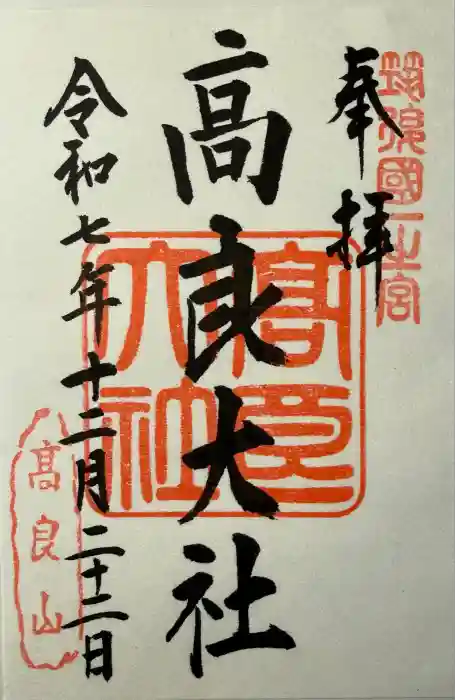 筑後國一之宮
奉拝
高良大社
高良大社
令和七年十二月二十二日
高良山